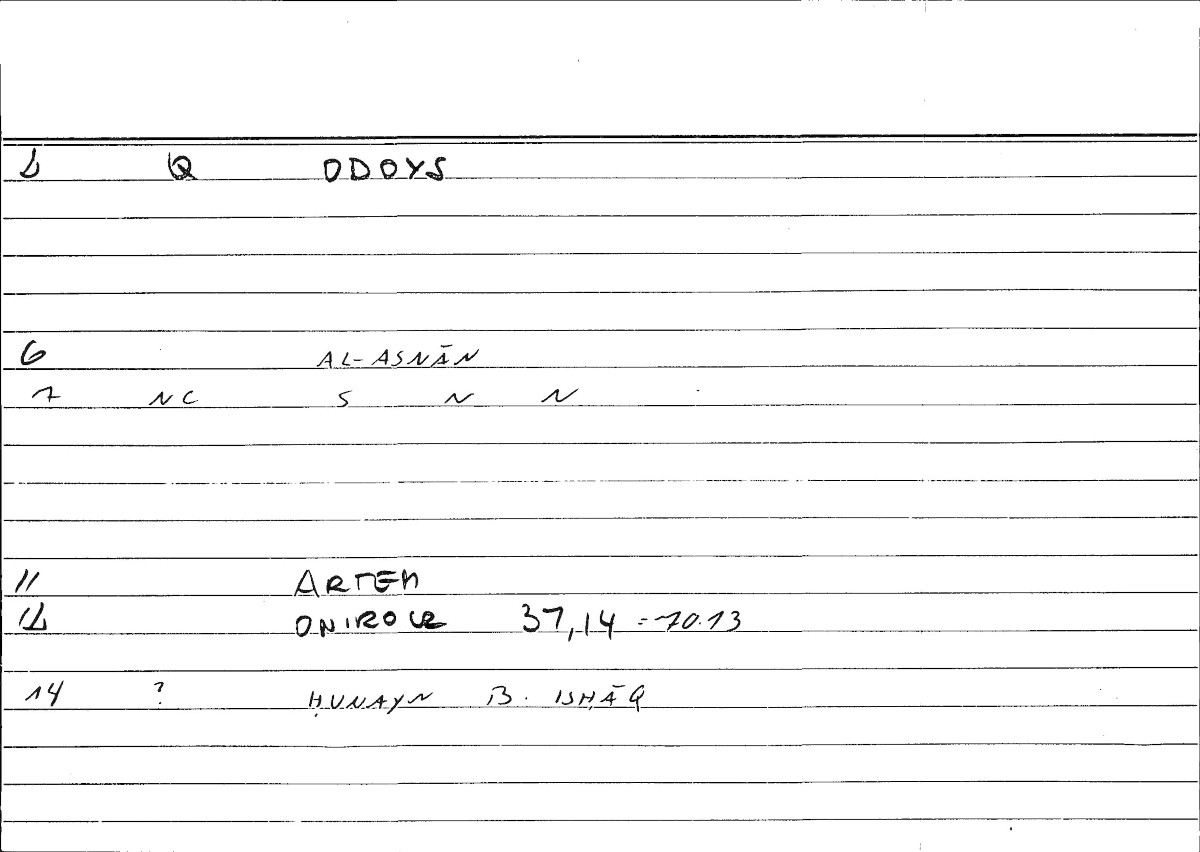 1 Q ODOYS
6 AL-ASNĀN
7 NC S N N
11 ARTEM
12 ONIROCR 37,14 = 70.13
14 ? ḤUNAYN B. ISḤĀQ